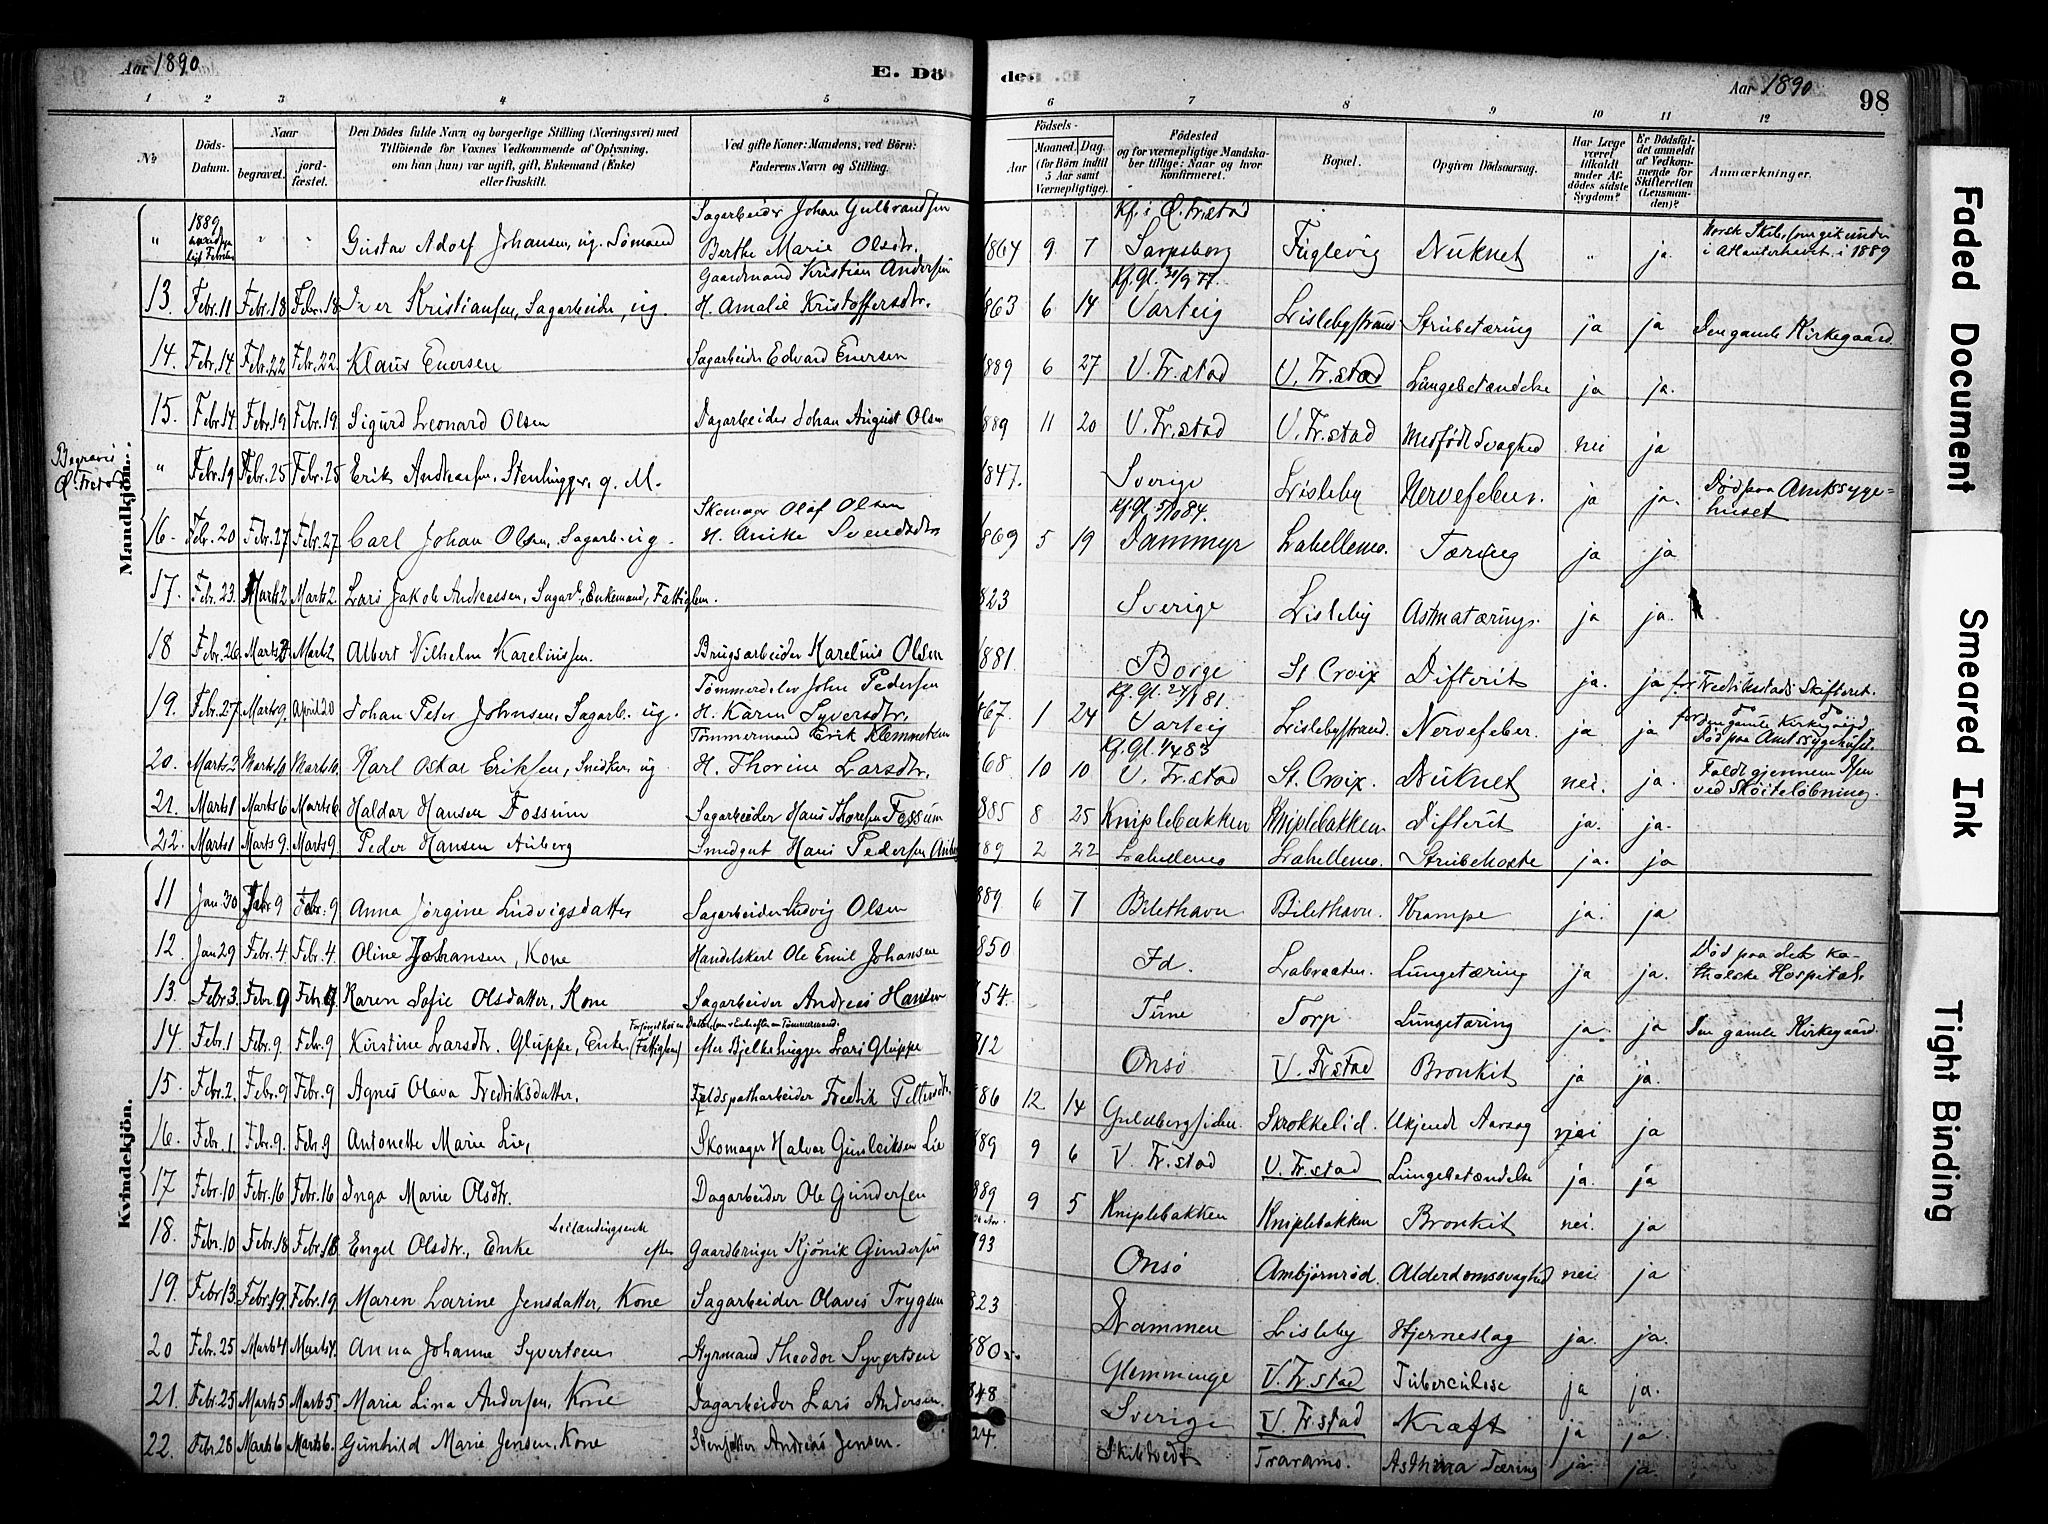 Aar 1890
E. Dö
deo
Aar 1890
98
1 2 3 4 5 6 7 8 9 10 11 12
No
Döds-Datum.
Naar
begravet.
jord-fæstet.
Den Dödes fulde Navn og borgerlige Stilling (Næringsvei) med
Tilföiende for Voxnes Vedkommende af Oplysning,
om han (hun) var ugift, gift, Enkemand (Enke)
eller fraskilt.
Ved gifte Koner: Mandens, ved Börn:
Faderens Navn og Stilling.
Födsels-
Aar
Maaned. Dag.
(for Börn indtil
5 Aar samt
Værnepligtige).
Födested
og for værnepligtige Mandska-
ber tillige: Naar og hvor
konfirmeret.
Bopæl.
Opgiven Dödsaarsag.
Har Læge
været
tilkaldt
under Af-
dödes sidste
Sygdom?
Er Dödsfal-
det anmeldt
af Vedkom-
mende for
Skifteretten
(Lensman-
den)?
Anmærkninger.
Mandkjön.
" 1889 " " Gustav Adolf Johansen, ug. Sömand Sagarbeider Johan Gulbrandsen Berthe Marie Olsdtr. 1864 9 7 Kf. i Ö. Fr.stad Sarpsborg Fuglevig Druknet " ja. Norsk Skib, som gik under i Atlanterhavet i 1889
13. Febr. 11 Febr. 18 Febr. 18 Iver Kristiansen, Sagarbeider, ug. Gaardmand Kristian Andersen H. Amalie Kristoffersdtr. 863 6 14 Kf. Gl. 30/9 77. Varteig Lislebystrand Strubetæring ja ja Den gamle Kirkegaard.
14. Febr. 14 Febr. 22 Febr. 22. Klaus Evensen Sagarbeider Edvard Evensen 889 6 27 V. Fr.stad V. Fr.stad Lungebetændelse ja ja.
15. Febr. 14 Febr. 19 Febr. 19. Sigurd Leonard Olsen Dagarbeider Johan August Olsen 889 11 20 V. Fr.stad V. Fr.stad Medfødt Svaghed nei ja
Begravet Ö. Fr.stad
" Febr. 19 Febr. 25 Febr. 25 Erik Andreasen, Stenhugger, g. M. 1847. Sverige Lisleby Nervefeber. ja ja. Död paa Amtssyge=huset
16. Febr. 20 Febr. 27 Febr. 27 Carl Johan Olsen, Sagarb. ug. Skomager Olaf Olsen H. Anike Svendsdtr 869 5 19 Kf. Gl. 5/10 84. Dammyr Lahellemo. Tæring ja ja
17. Febr. 23. Marts 2 Marts 2. Lars Jakob Andreassen, Sagarb., Enkemand, Fattiglem. 823 Sverige Lisleby Astmatæring. ja ja.
18 Febr. 26 Marts 2 Marts 2 Albert Vilhelm Kareliussen. Brugsarbeider Karelius Olsen 1881. Borge St Croix Difterit ja. ja for Fredrikstads Skifteret.
19. Febr. 27 Marts 9. April 20 Johan Peter Johnsen, Sagarb. ug. Tömmerdeler John Pedersen H. Karen Syversdtr. 867. 1 24 Kf. Gl. 24/4 81. Varteig Lislebystrand. Nervefeber. ja ja for do do den gamle Kirkegaard Död paa Amtssygehuset.
20. Marts 2 Marts 10 Marts 10. Karl Oskar Eriksen, Snedker, ug Tömmermand Erik Klemmetsen H. Thorine Larsdtr. 68. 10 10 Kf. Gl. 1/4 83 V. Fr.stad St. Croix. Druknet nei. ja. Faldt gjennem Isen ved Skøiteløbning.
21. Marts 1 Marts 6 Marts 6. Haldor Hansen Fossum Sagarbeider Hans Thoresen Fossum 885 8 25 Kniplebakken Kniplebakken. Difterit ja. ja.
22. Marts 1 Marts 9. Marts 9. Peder Hansen Auberg Smedgut Hans Pedersen Auberg 89 2 22 Lahellemo Lahellemo. Strubehoste ja. ja
Kvindekjön.
11 Jan. 30 Febr. 9 Febr. 9 Anna Jørgine Ludvigsdatter Sagarbeider Ludvig Olsen 889 6 7 Bilethavn Bilethavn. Krampe ja. ja
12. Jan 29 Febr. 4. Febr. 4. Oline Johansen, Kone Handelskarl Ole Emil Johansen 850 Id. Labraaten. Lungetæring ja ja. Död paa det katholske Hospital.
13. Febr. 3. Febr. 9 Febr. 9 Karen Sofie Olsdatter, Kone Sagarbeider Andreas Hansen 54. Tune Torp Lungetæring ja. ja Den gamle Kirkegaard.
14. Febr. 1 Febr. 9. Febr. 9 Kirstine Larsdtr. Gluppe, Enke (Fattiglem) efter Bjelkehugger Lars Gluppe 812 Onsö V. Fr.stad Bronkit ja ja.
15. Febr. 2. Febr. 9 Febr. 9 Agnes Olava Fredriksdatter. Feldspatharbeider Fredrik Pettersen 86 12 14 Guldbergsiden. Skrokkelid. Ukjendt Aarsag nei ja
16. Febr. 1. Febr. 9. Febr 9 Antonette Marie Lie, Skomager Halvor Gunleiksen Lie 889 9 6 V. Fr.stad V. Fr.stad Lungebetændelse ja. ja
17 Febr. 10 Febr. 16 Febr. 16 Inga Marie Olsdtr. Dagarbeider Ole Gundersen 889 9 5 Kniplebakken Kniplebakken Bronkit nei. ja
18. Febr. 10 Febr. 18 Febr. 18 Engel Olsdtr., Enke Leilændingsenk efter Gaardbruger Kjönik Gundersen 793 Onsö Ambjörnröd. Alderdomssvaghed nei ja
19. Febr 13. Febr. 19. Febr. 19 Maren Larine Jensdatter, Kone Sagarbeider Olaves Trygsen 823 Drammen Lisleby Hjerneslag ja. ja.
20 Febr. 25 Marts 4 Marts 4. Anna Johanne Syvertsen Styrmand Theodor Syvertsen 880 Glemminge V. Fr.stad Tuberculose ja ja.
21. Febr. 25 Marts 5 Marts 5 Maria Lina Andersen, Kone Dagarbeider Lars Andersen. 848 Sverige V. Fr.stad Kræft ja ja.
22. Febr. 28 Marts 6 Marts 6. Gunhild Marie Jensen, Kone Andreas Jensen. 24 Skibtvedt Traramo. Asthma Tæring ja. ja.
Faded Document
Smeared Ink
Tight Binding